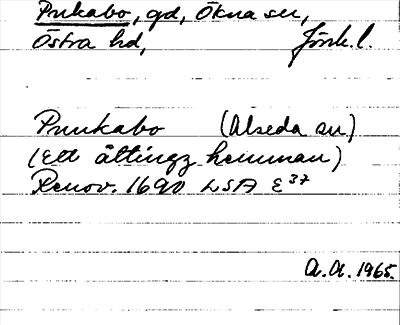 Pukabo, gd, Ökna sn,
Östra hd, Jönk. l.
Puukabo (Alseda sn)
(Ett åttingz hemman)
Renov. 1690 LSA E³⁷
A.A. 1965.